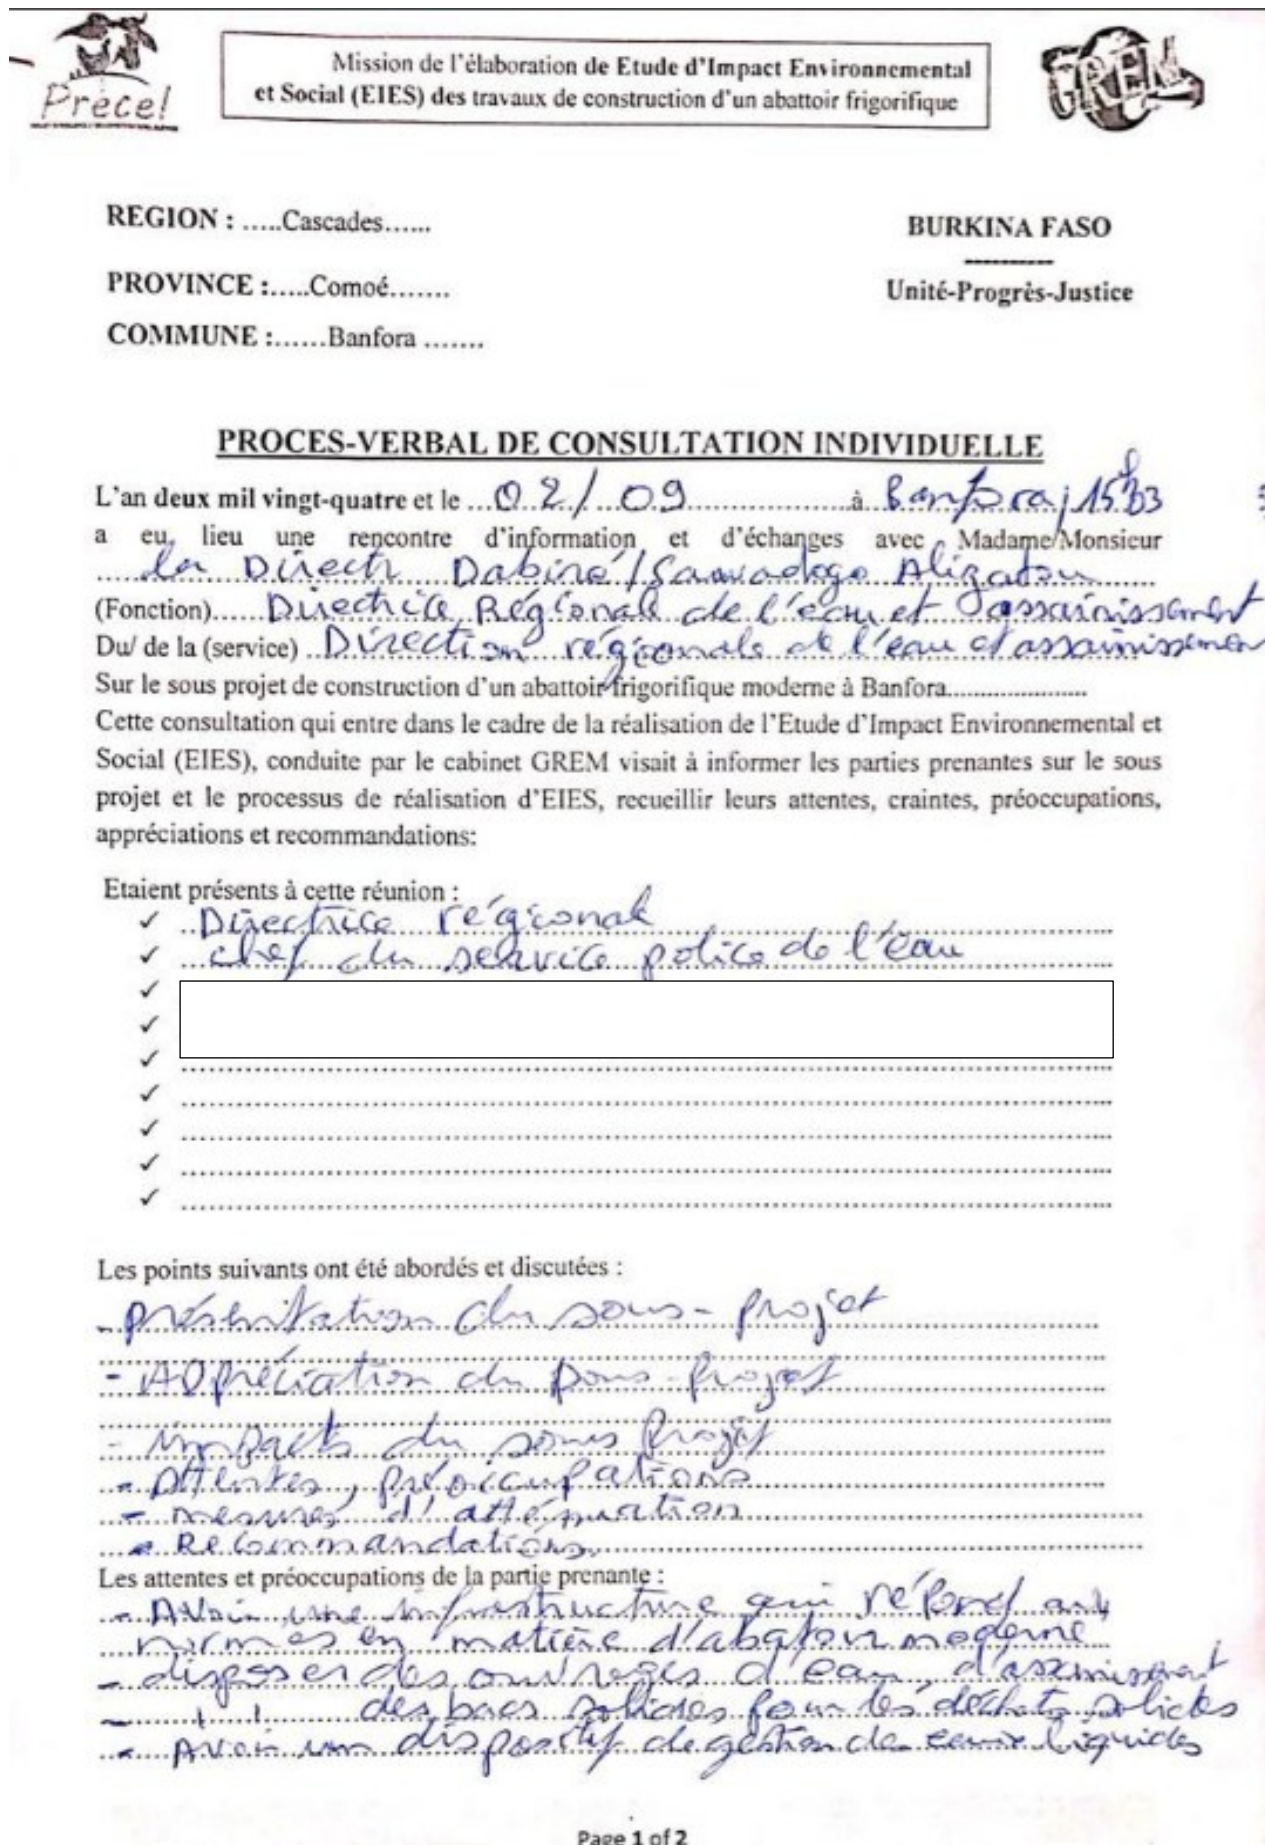 Precel
Mission de l'élaboration de Etude d'Impact Environnemental
et Social (EIES) des travaux de construction d'un abattoir frigorifique
GREM
REGION : .....Cascades......
BURKINA FASO
----------
PROVINCE :.....Comoé.......
Unité-Progrès-Justice
COMMUNE :......Banfora .......
PROCES-VERBAL DE CONSULTATION INDIVIDUELLE
L'an deux mil vingt-quatre et le ...02/...09.....................à ..Banfora, 15h03
a eu lieu une rencontre d'information et d'échanges avec Madame/Monsieur
la Direct Dabiré/Sawadogo Alizatou
(Fonction)......Directrice Régionale de l'eau et assainissement
Du/ de la (service) ..Direction régionale de l'eau et assainissement
Sur le sous projet de construction d'un abattoir frigorifique moderne à Banfora......................
Cette consultation qui entre dans le cadre de la réalisation de l'Etude d'Impact Environnemental et
Social (EIES), conduite par le cabinet GREM visait à informer les parties prenantes sur le sous
projet et le processus de réalisation d'EIES, recueillir leurs attentes, craintes, préoccupations,
appréciations et recommandations:
Etaient présents à cette réunion :
✓ Directrice régionale
✓ chef du service police de l'eau
✓
✓
✓
✓
✓
✓
✓
Les points suivants ont été abordés et discutées :
- présentation du sous-projet
- Appréciation du sous-projet
- impacts du sous projet
- Attentes, préoccupations
- mesures d'atténuation
- Recommandations.
Les attentes et préoccupations de la partie prenante :
- Avoir une infrastructure qui répond aux
normes en matière d'abatoir moderne
- disposer des ouvrages d'eau, d'assainissement
- ı ı des bacs solides pour les déchets solides
- Avoir un dispositif de gestion de liquides
Page 1 of 2